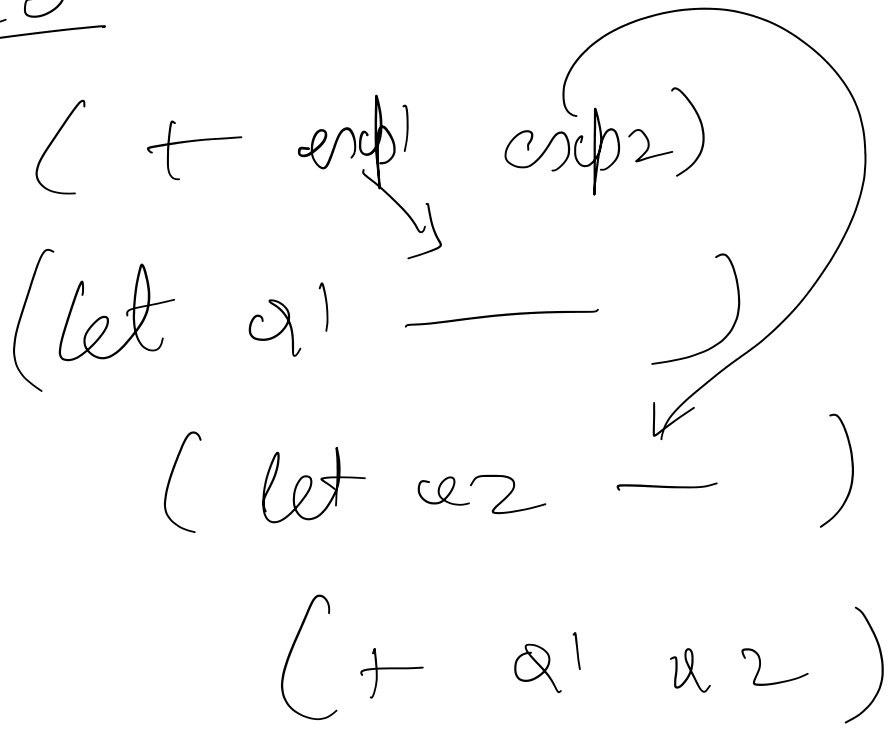 ( + exp1 exp2)
(let a1 — )
( let a2 — )
(+ a1 a2 )